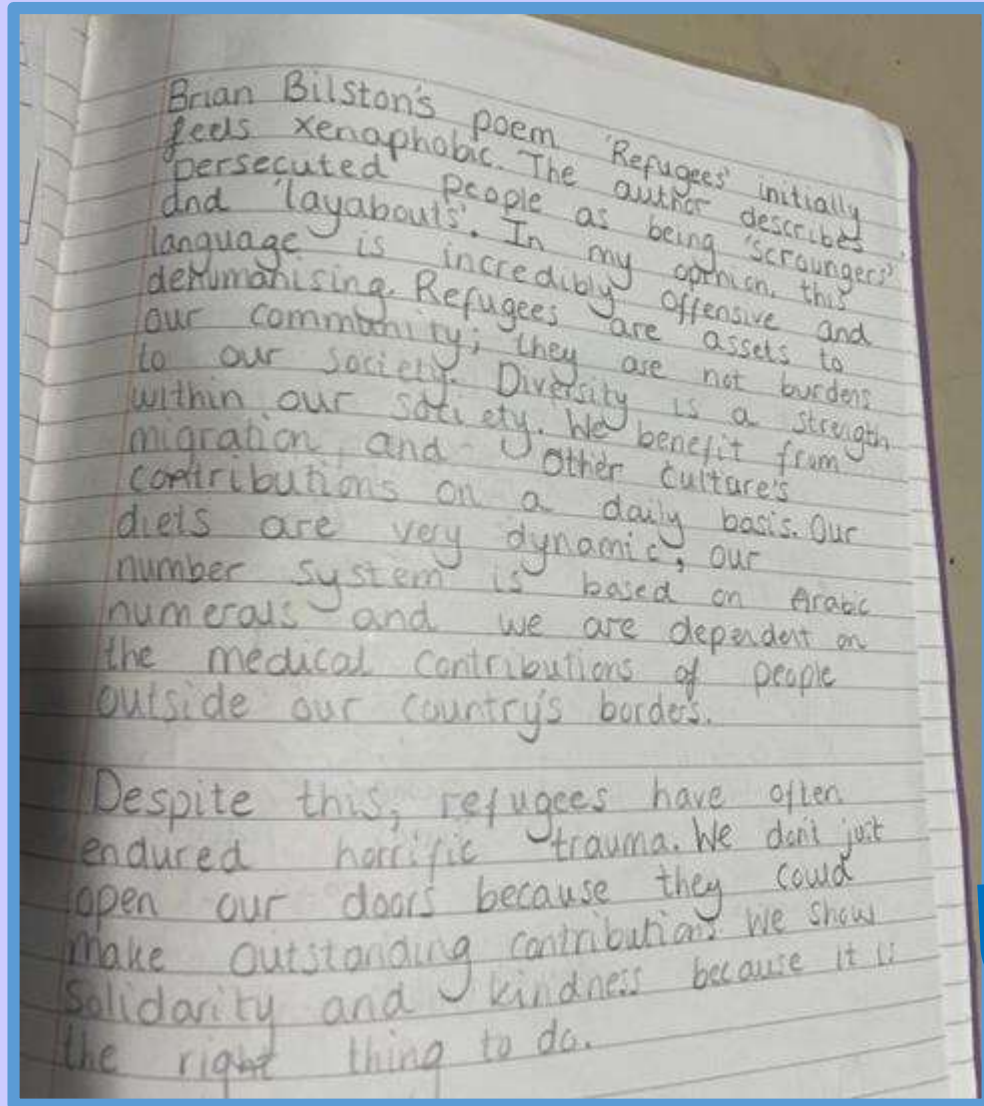 Brian Bilston's poem 'Refugees' initially
feels xenaphobic. The author describes
persecuted people as being 'scroungers'
and 'layabouts'. In my opinion, this
language is incredibly offensive and
dehumanising. Refugees are assets to
our community; they are not burdens
to our society. Diversity is a strength
within our society. We benefit from
migration and other culture's
contributions on a daily basis. Our
diets are very dynamic, our
number system is based on Arabic
numerals and we are dependent on
the medical contributions of people
outside our country's borders.
Despite this, refugees have often
endured horrific trauma. We don't just
open our doors because they could
make outstanding contributions We show
solidarity and kindness because it is
the right thing to do.